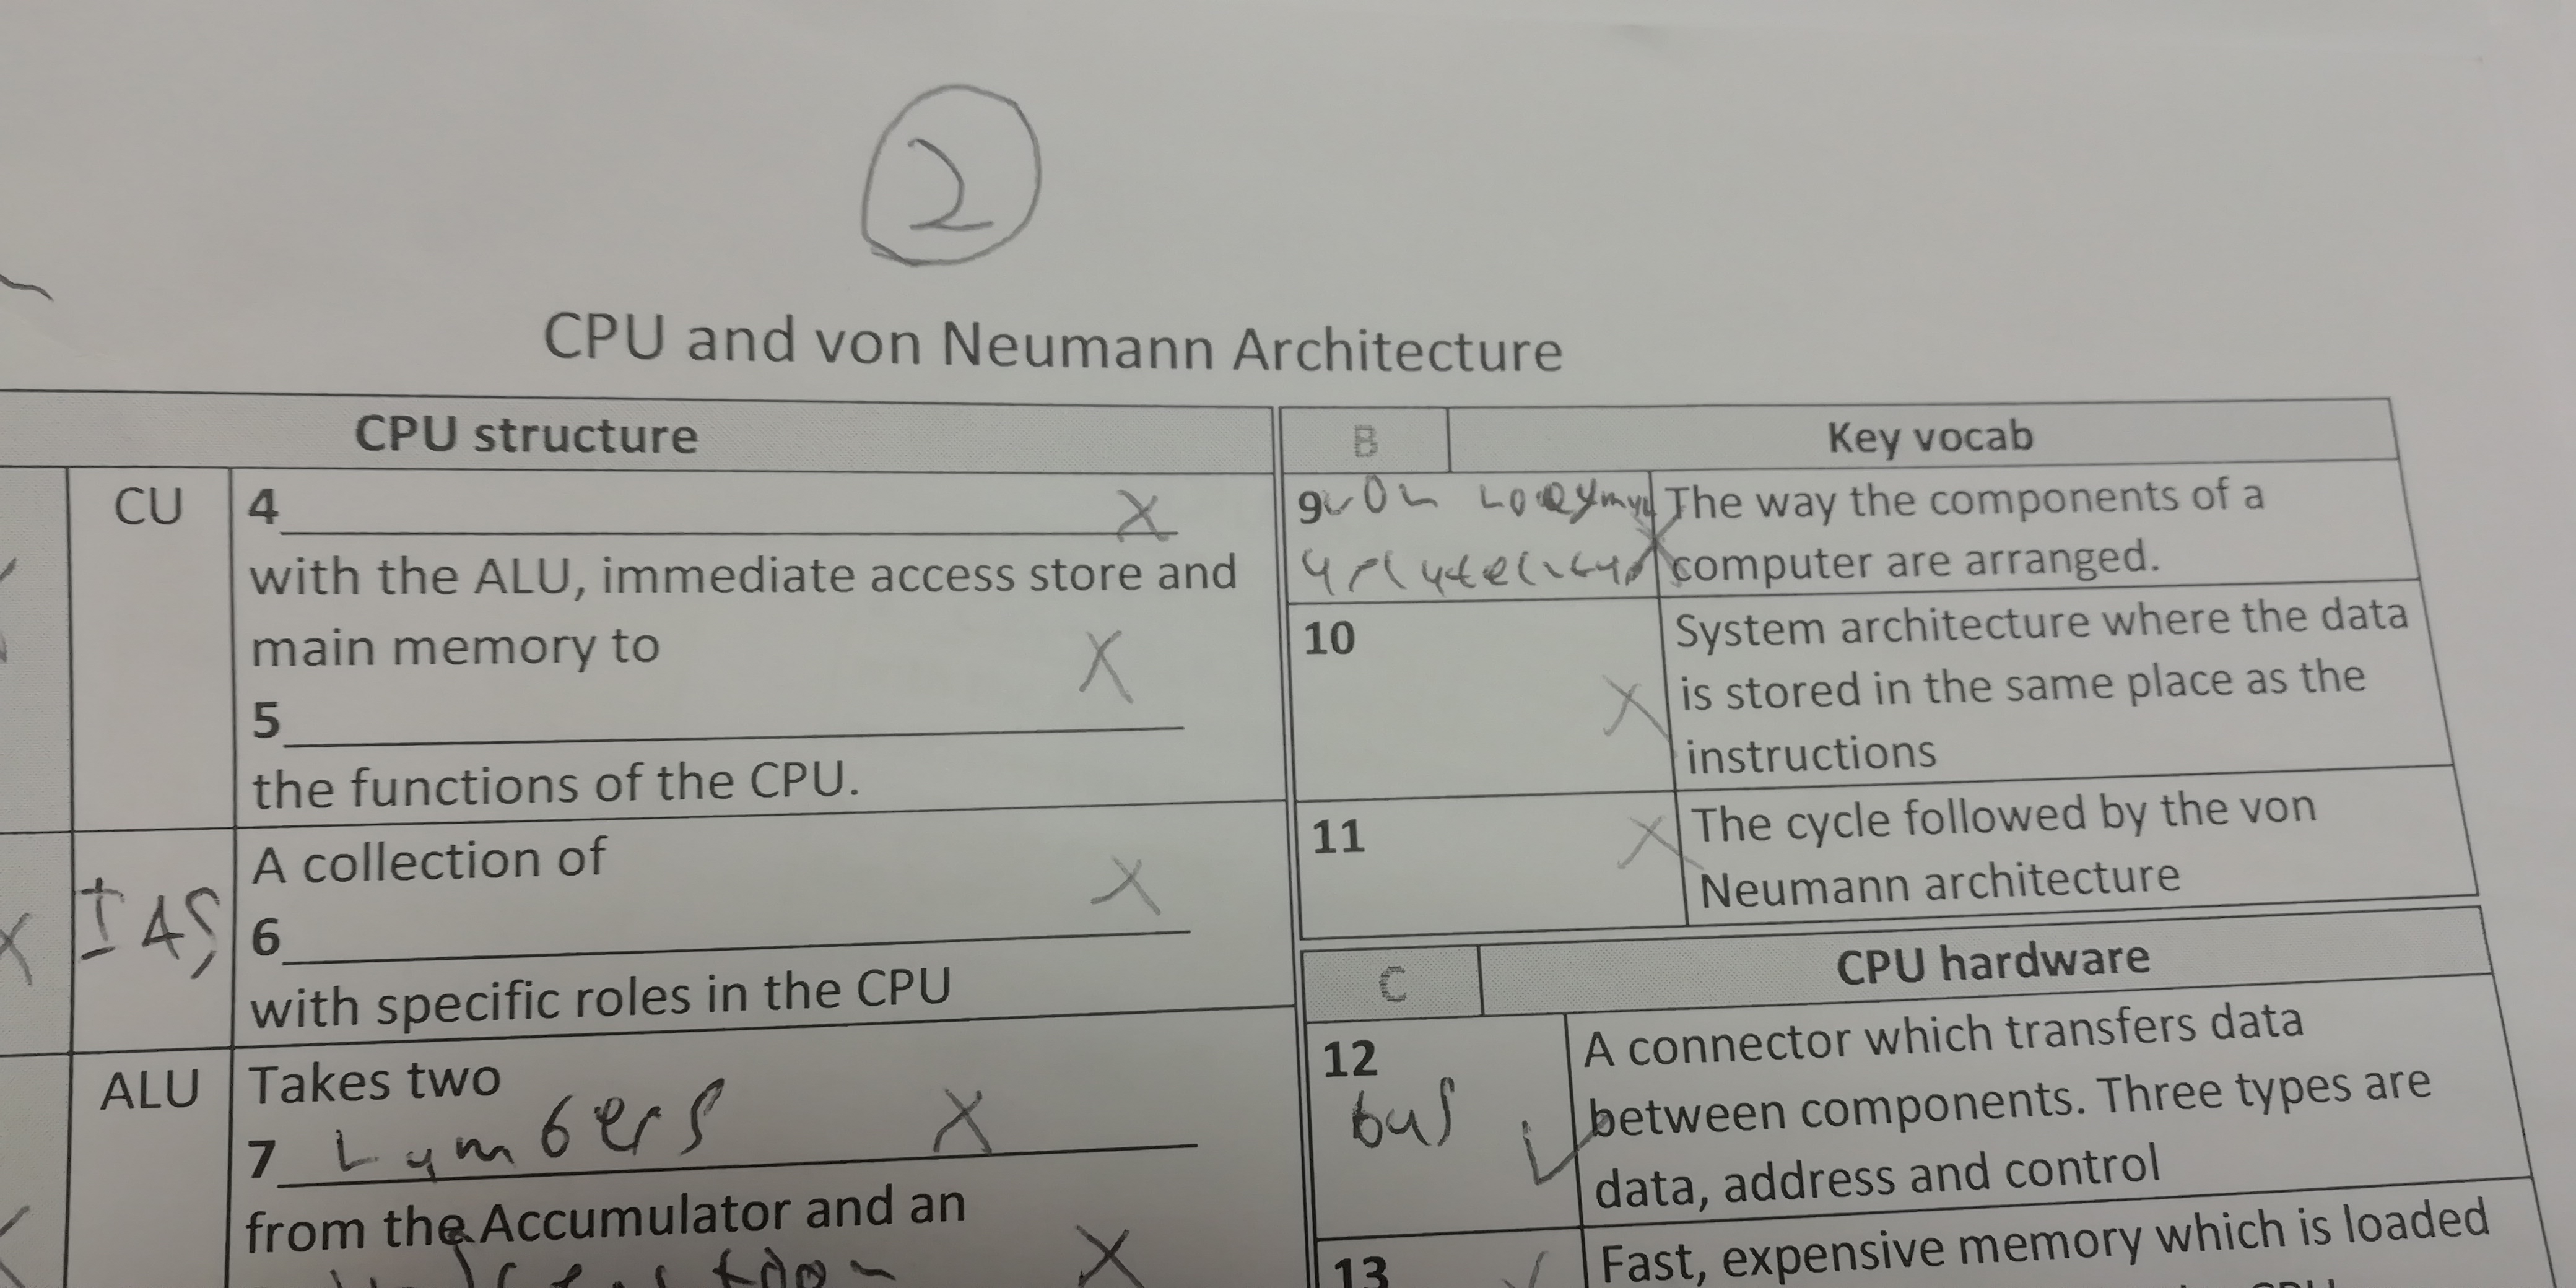 2
CPU and von Neumann Architecture
CPU structure
CU
4 X
with the ALU, immediate access store and
main memory to X
5
the functions of the CPU.
X
IAS
A collection of
6 X
with specific roles in the CPU
ALU
Takes two
7 X
from the Accumulator and an
X
B Key vocab
9 von
The way the components of a
computer are arranged.
X
10 X
System architecture where the data
is stored in the same place as the
instructions
11 X
The cycle followed by the von
Neumann architecture
C CPU hardware
12
bus
A connector which transfers data
between components. Three types are
data, address and control
13
Fast, expensive memory which is loaded